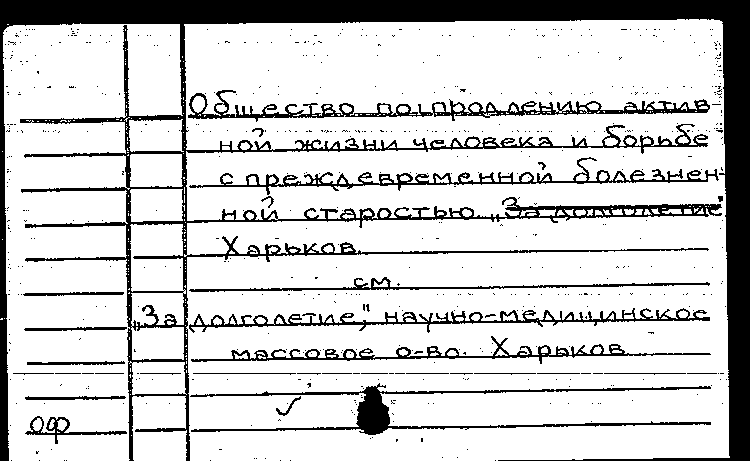 Общество по продлению актив-
ной жизни человека и борьбе
с преждевременной болезнен-
ной старостью „За долголетие"
Харьков.
см.
„За долголетие", научно-медицинское
массовое о-во. Харьков
ОФ